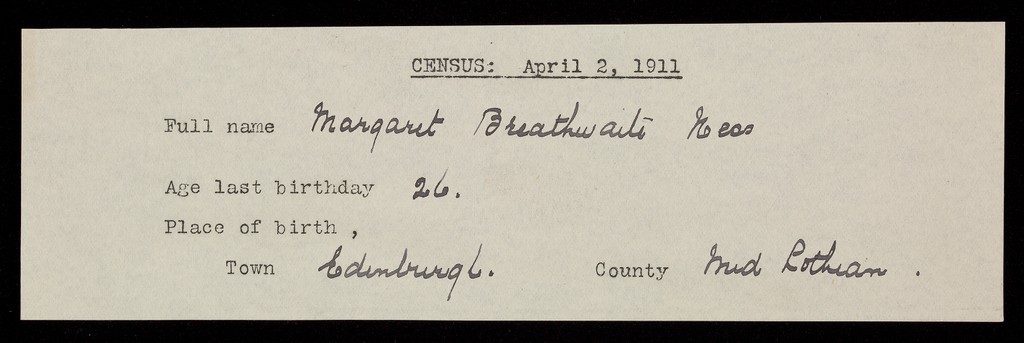 CENSUS: April 2, 1911
Full name Margaret Breathwaite Ness
Age last birthday 26.
Place of birth ,
Town Edinburgh. County Mid Lothian .